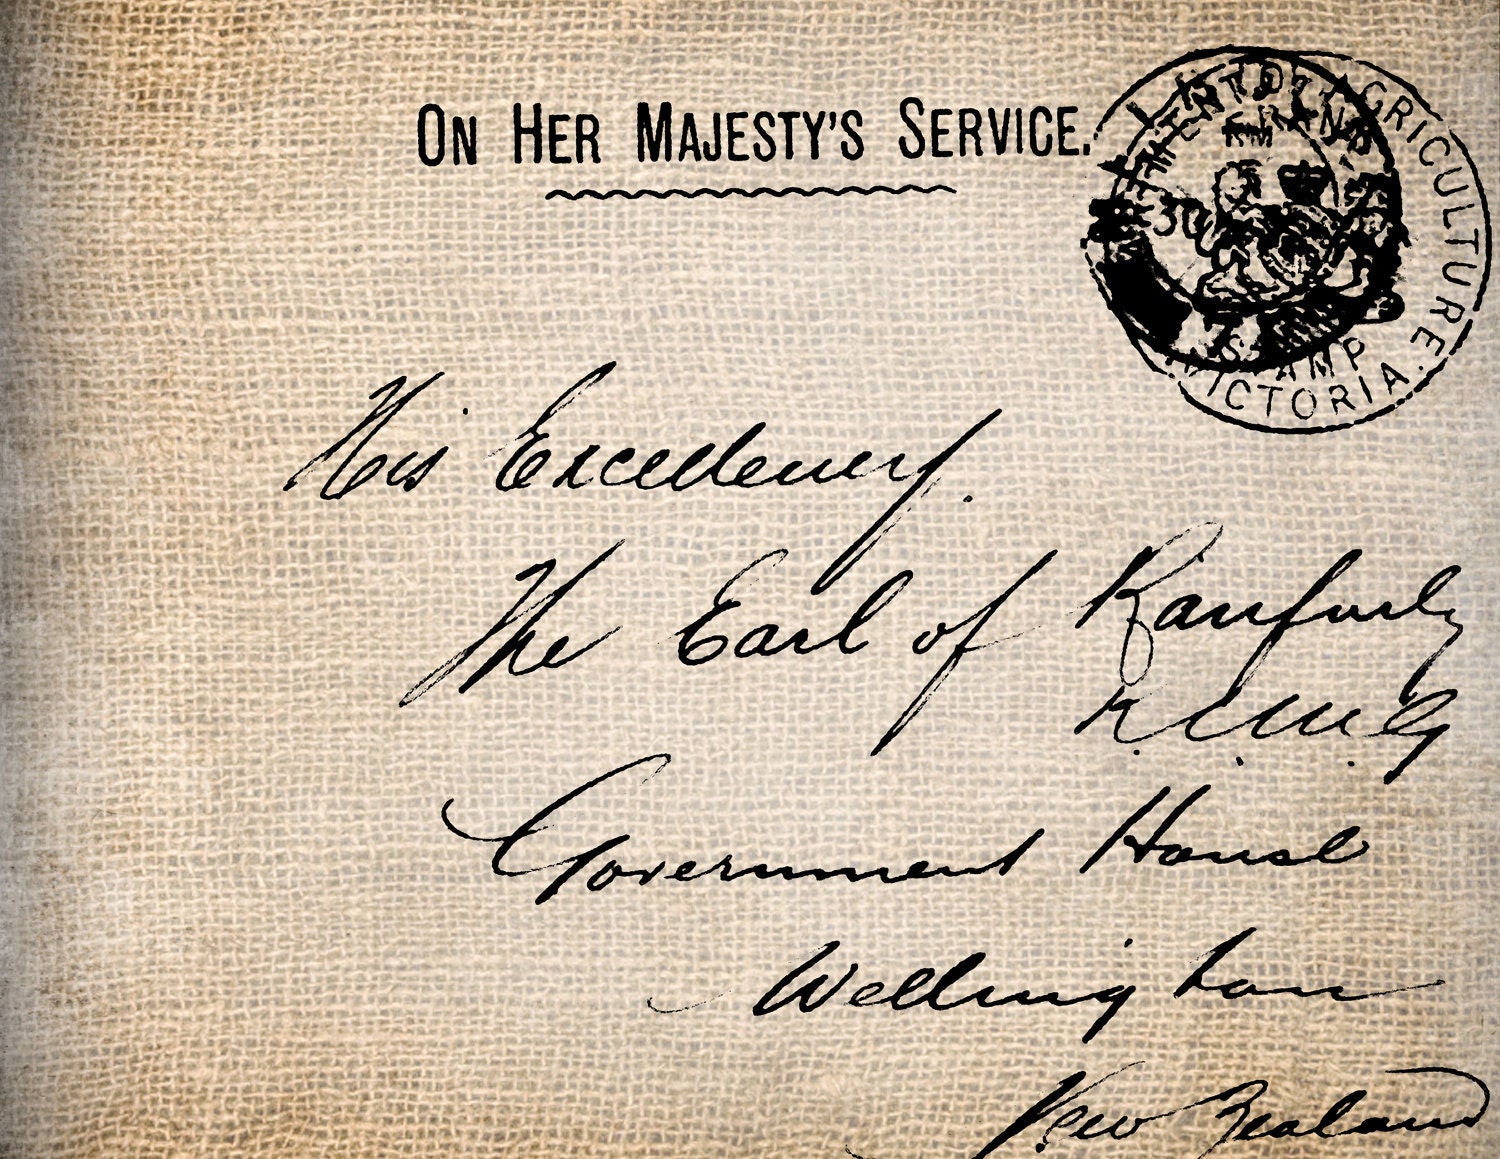 On Her Majesty's Service.
AGRICULTURE.
STAMP
VICTORIA.
His Excellency.
The Earl of Ranfurly
K.C.M.G
Government House
Wellington
New Zealand